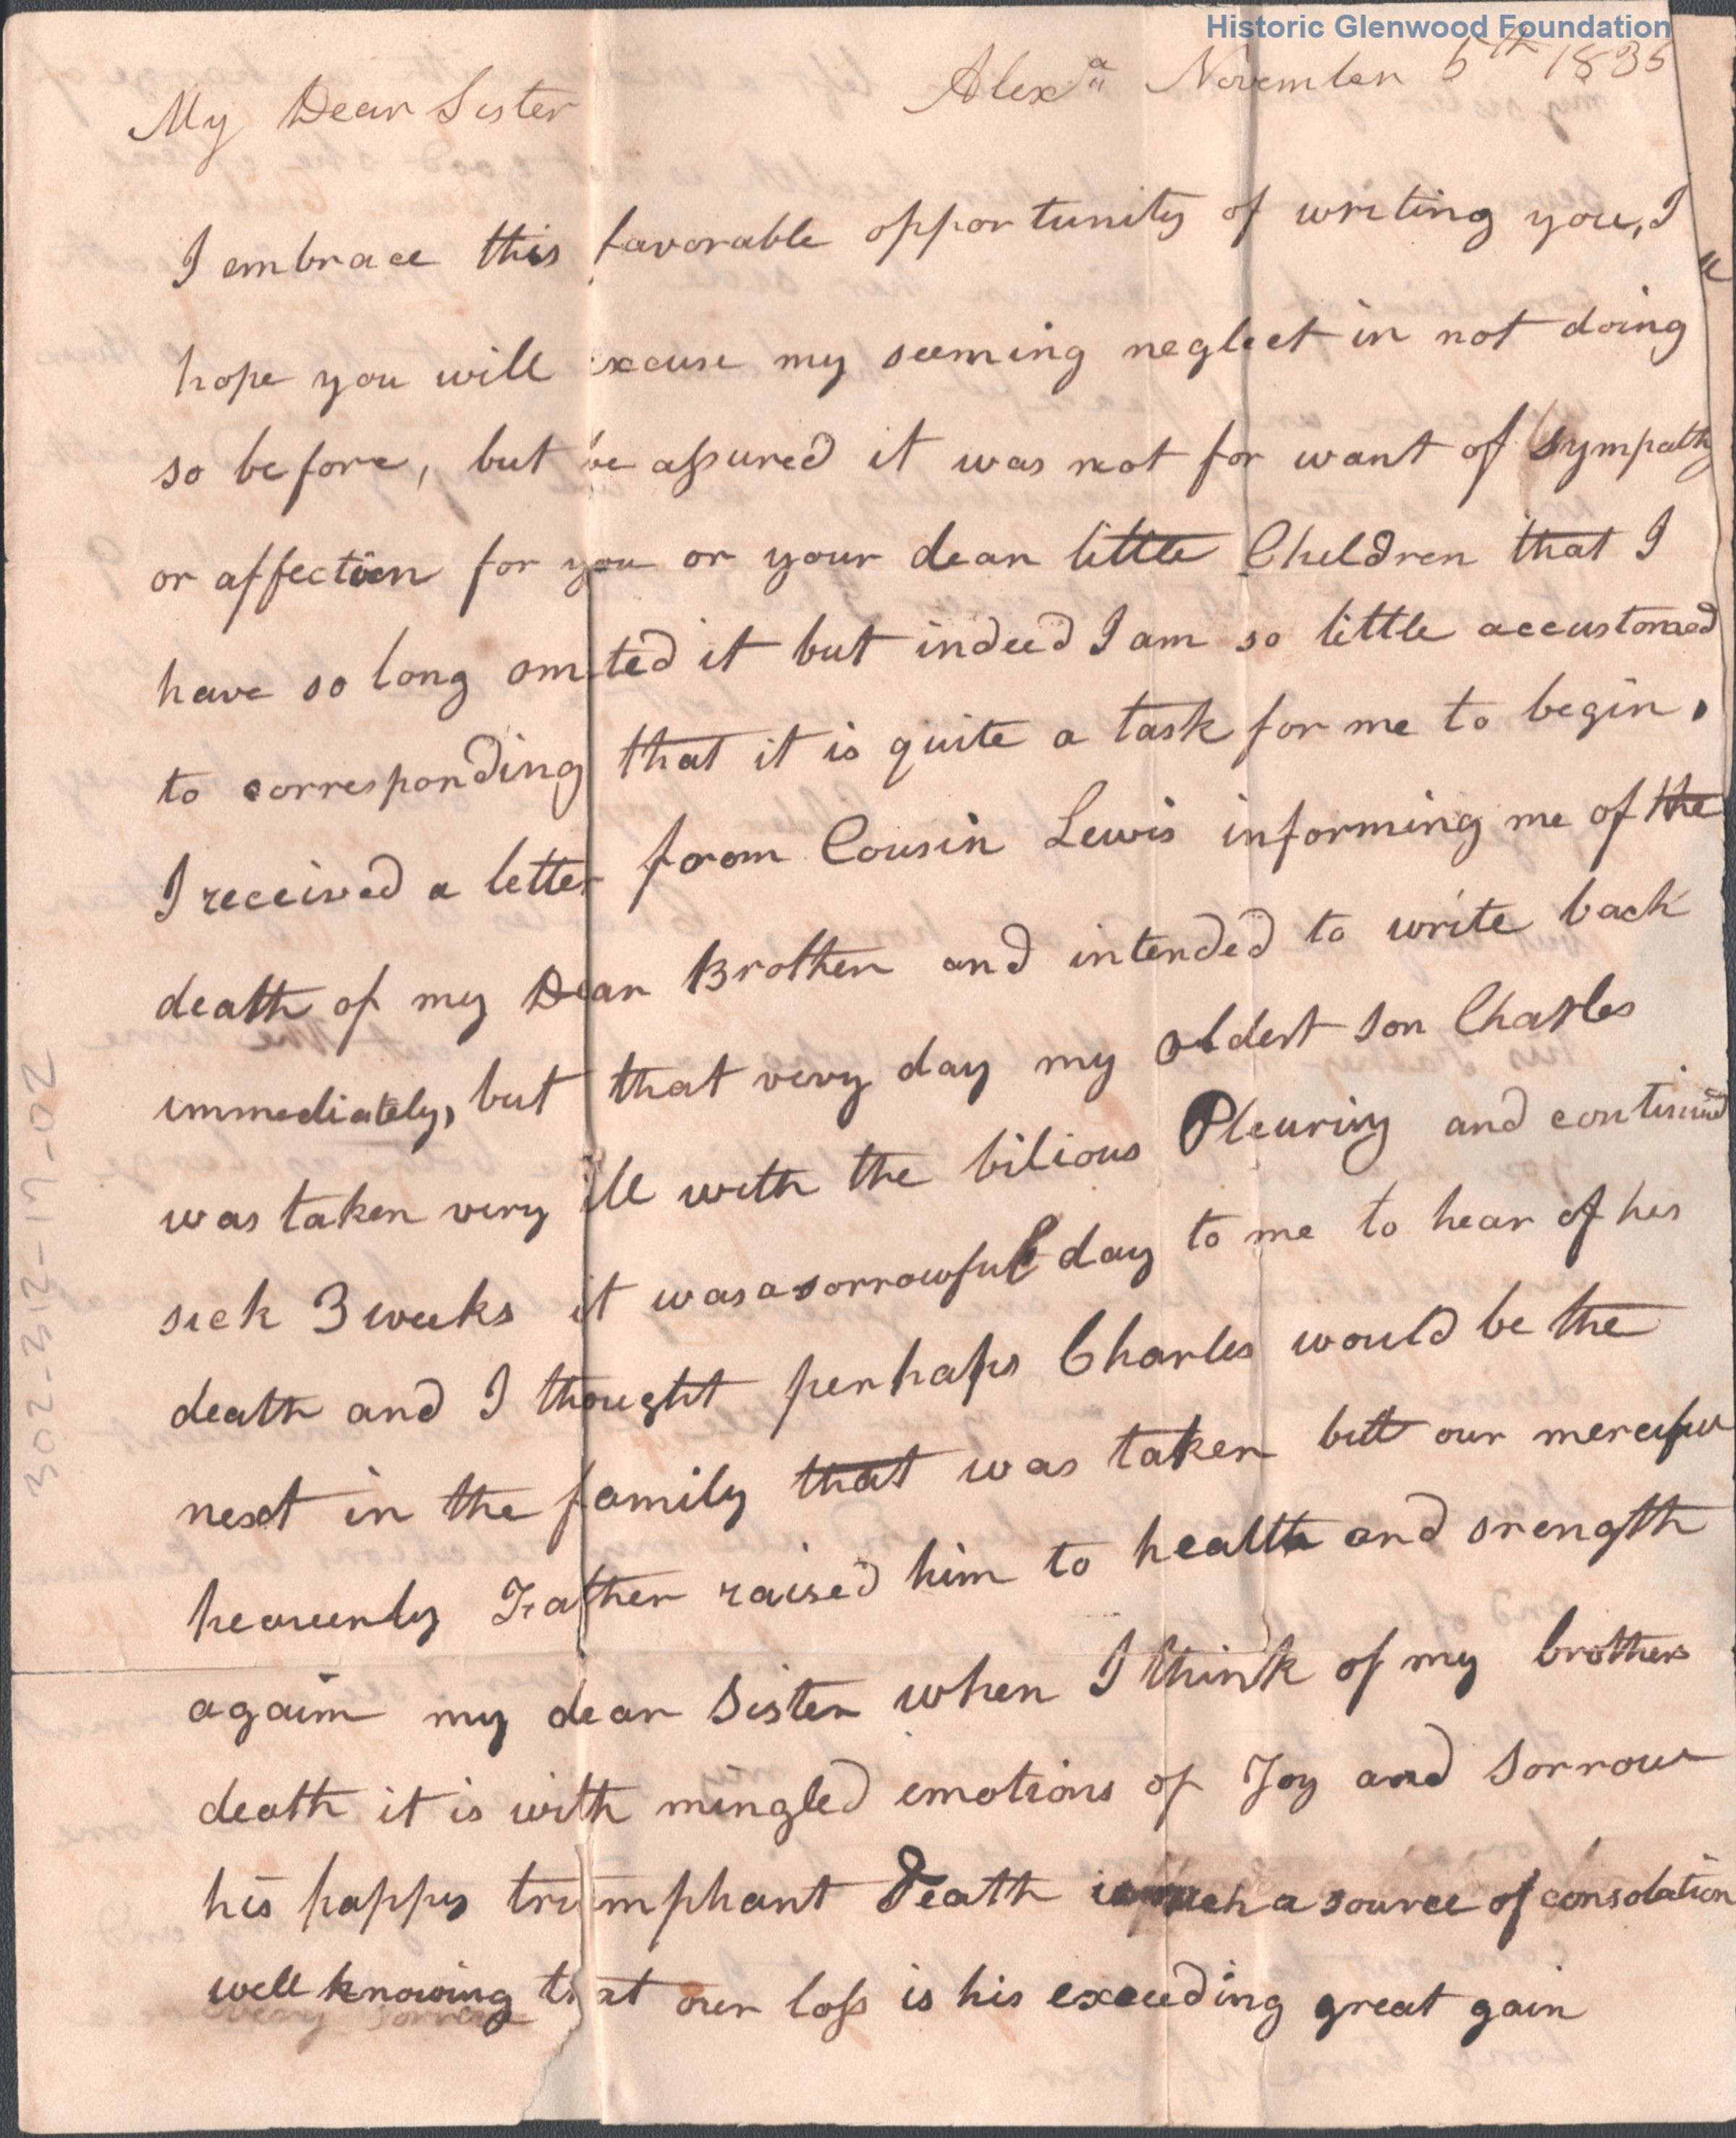 Historic Glenwood Foundation
Alexª November 5th 1835
My Dear Sister
I embrace this favorable opportunity of writing you, I
hope you will excuse my seeming neglect in not doing
so before, but be assured it was not for want of sympathy
or affection for you or your dear little Children that I
have so long omited it but indeed I am so little accustomed
to corresponding that it is quite a task for me to begin,
I received a letter forom Cousin Lewis informing me of the
death of my Dear Brother and intended to write back
immediately, but that very day my oldest son Charles
was taken very ill with the bilious Pleurisy and continued
sick 3 weeks it was a sorrowful day to me to hear of his
death and I thought perhaps Charles would be the
next in the family that was taken but our merciful
heavenly Father raised him to health and srength
again my dear Sister when I think of my brothers
death it is with mingled emotions of Joy and Sorrow
his happy triumphant Death is such a source of consolation
well knowing that our loss is his exceeding great gain
302-312-17-02